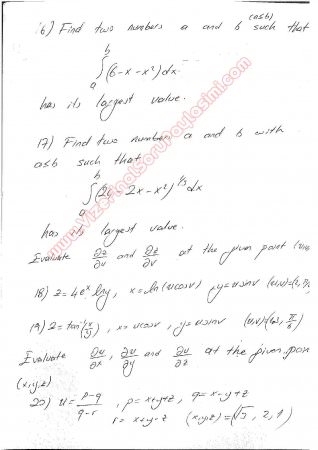 16) Find two numbers a and b (a≤b) such that
∫_a^b (6-x-x²)dx
has its largest value.
17) Find two numbers a and b with
a≤b such that
∫_a^b (24-2x-x²)^{1/3} dx
has its largest value.
Evaluate ∂z/∂u and ∂z/∂v at the given point (u,v)
18) z=4eˣ lny, x=ln(ucosv) , y=usinv (u,v)=(2,π/4)
19) z=tan⁻¹(x/y), x=ucosv , y=usinv (u,v)=(1.3, π/6)
Evaluate ∂u/∂x, ∂u/∂y and ∂u/∂z at the given point
(x,y,z)
20) u= (p-q)/(q-r) , p=x+y+z, q=x-y+z
r=x+y-z (x,y,z)=(√3, 2, 1)
www.VizeFinalSoruPaylasimi.com